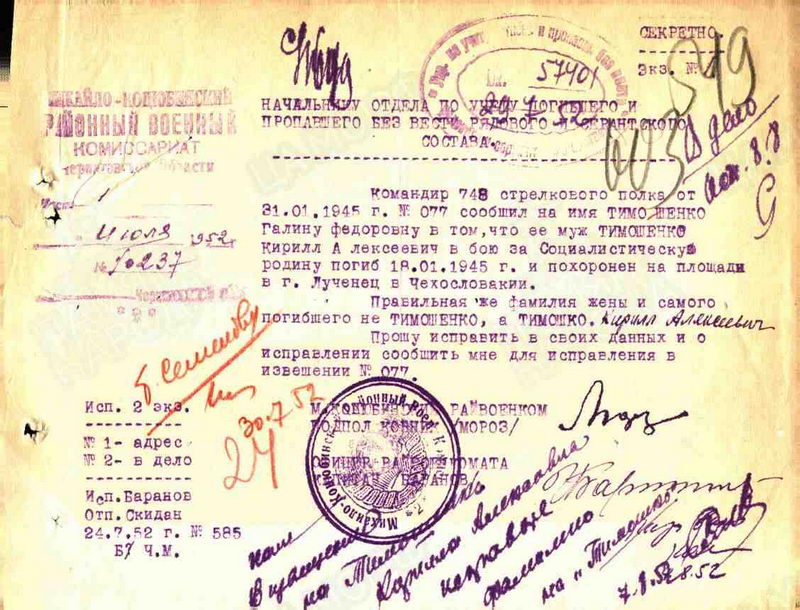 СЕКРЕТНО.
Экз. №
57401
349
603
В дело
8.8
НАЧАЛЬНИКУ ОТДЕЛА ПО УЧЕТУ ПОГИБШЕГО И
ПРОПАВШЕГО БЕЗ ВЕСТИ РЯДОВОГО И СЕРЖАНТСКОГО
СОСТАВА
МИХАЙЛО-КОЦЮБИНСКИЙ
РАЙОННЫЙ ВОЕННЫЙ
КОМИССАРИАТ
Черниговской области
Июля 1952
№ 10237
Командир 748 стрелкового полка от
31.01.1945 г. № 077 сообщил на имя ТИМОШЕНКО
Галину федоровну в том,что ее муж ТИМОШЕНКО
Кирилл Алексеевич в бою за Социалистическую
родину погиб 18.01.1945 г. и похоронен на площади
в г. Лученец в Чехословакии.
Правильная же фамилия жены и самого
погибшего не ТИМОШЕНКО, а ТИМОШКО. Кирилл Алексеевич
Прошу исправить в своих данных и о
исправлении сообщить мне для исправления в
извещении № 077.
т. Семенову
30.7.52
24
Исп. 2 экз.
№ 1- адрес
№ 2- в дело
М.КОЦЮБИНСКИЙ РАЙВОЕНКОМ
ПОДПОЛКОВНИК /МОРОЗ/
ОФИЦЕР РАЙВОЕНКОМАТА
КАПИТАН БАРАНОВ
Исп.Баранов
Отп.Скидан
24.7.52 г. № 585
Б/ Ч.М.
на Тимошенко
Кирилла Алексеевича
фамилию
на "Тимошко"
7.8.52
8.52